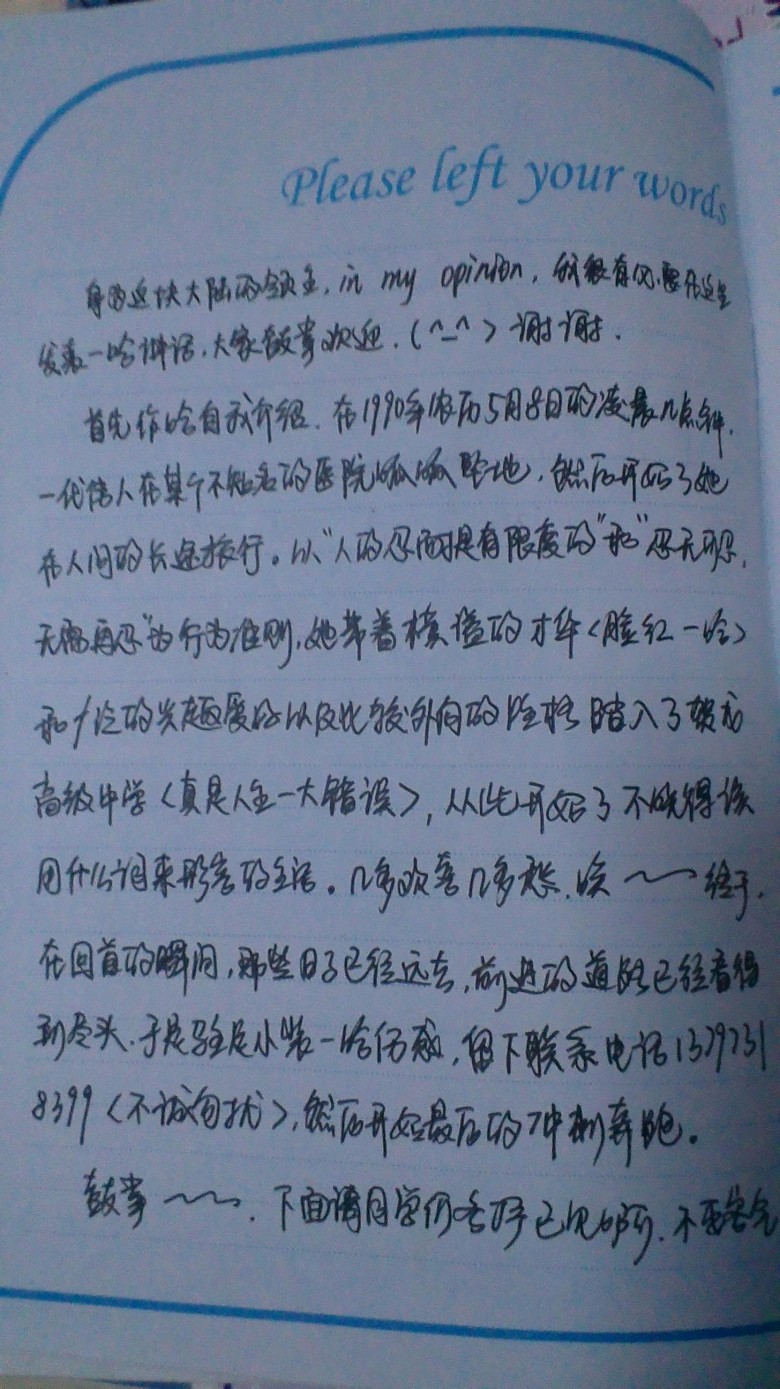 Please left your words
身为这块大陆的领主, in my opinion, 我很有必要在这里
发表一哈讲话,大家鼓掌欢迎.(^_^) 谢谢.
首先作哈自我介绍.在1990年农历5月8日的凌晨几点钟,
一代伟人在某个不知名的医院呱呱坠地,然后开始了她
在人间的长途旅行。以“人的忍耐是有限度的”和“忍无可忍,
无需再忍”为行为准则,她带着横溢的才华<脸红一哈>
和广泛的兴趣爱好以及比较外向的性格踏入了
高级中学<真是人生一大错误>,从此开始了不晓得该
用什么词来形容的生活。几多欢喜几多愁,唉~~终于,
在回首的瞬间,那些日子已经远去,前进的道路已经看得
到尽头.于是驻足小装一哈伤感,留下联系电话1379731
8399<不诚勿扰>,然后开始最后的冲刺奔跑。
鼓掌~~.下面请同学们各抒己见的所,不要客气